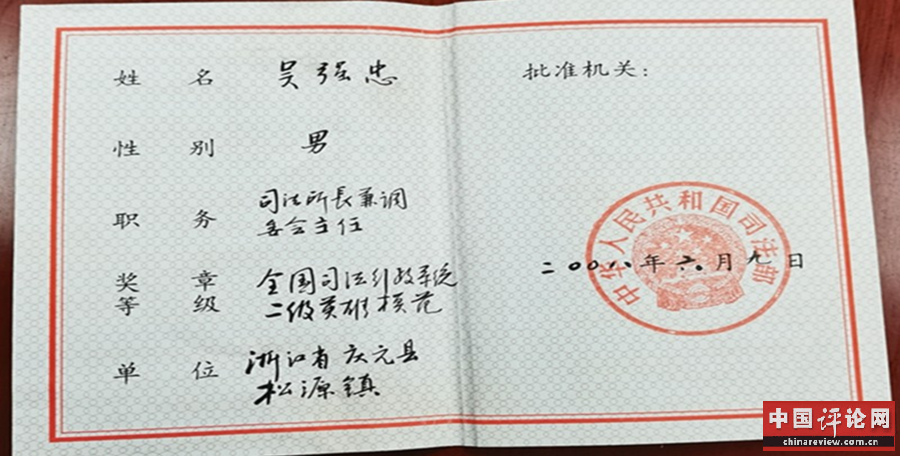 姓名 吴强忠
性别 男
职务 司法所長兼调
委会主任
奖章 全国司法行政系统
等级 二级英雄模范
单位 浙江省庆元县
松源镇
批准机关：
中华人民共和国司法部
二〇〇八年六月九日
中国评论网
chinareview.com.cn